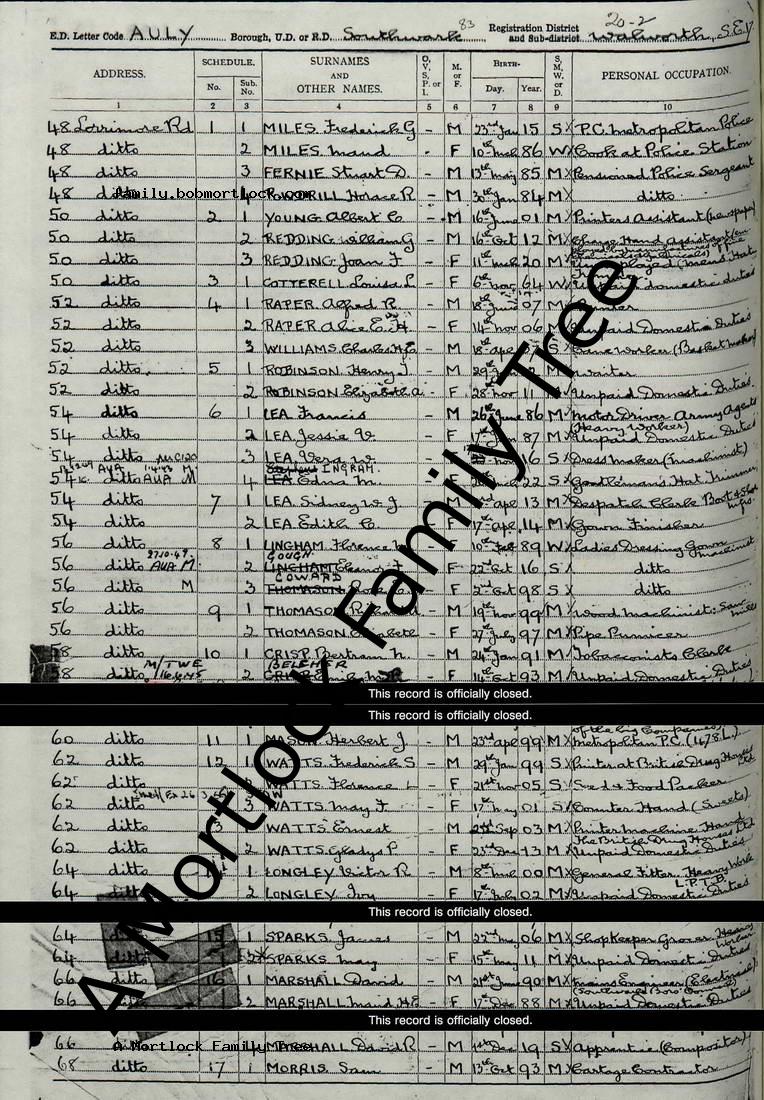 E.D. Letter Code AULY Borough, U.D. or R.D. Southwark 83 Registration District and Sub-district 20-2 Walworth, S.E.17
ADDRESS. SCHEDULE. No. Sub. No. SURNAMES AND OTHER NAMES. O, V, S, P. or I. M. or F. BIRTH- Day. Year. S, M, W, or D. PERSONAL OCCUPATION.
1 2 3 4 5 6 7 8 9 10
48 Lorrimore Rd 1 1 MILES Frederick G - M 23rd Jan 15 S P.C. Metropolitan Police
48 ditto 2 MILES Maud - F 10th Mch 86 W Cook at Police Station
48 ditto 3 FERNIE Stuart D. - M 13th May 85 M Pensioned Police Sergeant
48 family.bobmortlock.com Horace R - M 30th Jan 84 M ditto
50 ditto 2 1 YOUNG Albert C - M 16th June 01 M Printers Assistant (newspaper)
50 ditto 2 REDDING William G - M 16th Oct 12 M Charge Hand Assistant
50 ditto 3 REDDING Joan F - F 11th Mch 20 M Unemployed (Mens Hat
50 ditto 3 1 COTTERELL Louisa L - F 6th Nov 64 W Unpaid domestic duties
52 ditto 4 1 RAPER Alfred R. - M 18th June 07 M
52 ditto 2 RAPER Alice E. H. - F 14th Nov 06 M Unpaid Domestic Duties
52 ditto 3 WILLIAMS Charles H - M 18th Apl S Cane Worker (Basket maker)
52 ditto 5 1 ROBINSON Henry J. - M 29th M Writer
52 ditto 2 ROBINSON Elizabeth A - F 28th Nov 11 Unpaid Domestic Duties
54 ditto 6 1 LEA Francis - M 26th June 86 M Motor Driver Army Agents
(Heavy Worker)
54 ditto 2 LEA Jessie V. - F 87 M Unpaid Domestic Duties
54 ditto 3 LEA Vera W. - Nov 16 S Dressmaker (Machinist)
INGRAM
54 ditto AUA M 4 LEA Edna M. - F 22 S Gentleman's Hat Trimmer
54 ditto 7 1 LEA Sidney W J. - M Apl 13 M Despatch Clerk Boot & Shoe
54 ditto 2 LEA Edith C. - F 17th Apl 14 M Gown Finisher
56 ditto 8 1 LINGHAM Florence - F 10th Feb 89 W Ladies Dressing Gown Machinist
27.10.47 GOUGH
56 ditto AUA M 2 LINGHAM Eleanor F - F 22nd Oct 16 S ditto
COWARD
56 ditto M 3 THOMASON - F 2nd Oct 98 S ditto
56 ditto 9 1 THOMASON - M 19th Nov 99 M Wood Machinist: Saw mills
56 ditto 2 THOMASON - F 27th July 97 M Pipe Pumicer
58 ditto 10 1 CRISP Bertram N. - M 24th Jan 91 M Tobacconists Clerk
M/TWE BELCHER
58 ditto 2 CRISP - F 14th Oct 93 M Unpaid Domestic Duties
This record is officially closed.
This record is officially closed.
60 ditto 11 1 MASON Herbert J. - M 23rd Apl 99 M Metropolitan P.C. (147 8.L.)
62 ditto 12 1 WATTS Frederick S - M 29th Jan 99 S Printer at British Drug Houses Ltd
62 ditto WATTS Florence L - F 21st Nov 05 S Seed & Food Packer
62 ditto 3 WATTS May F. - F 17th May 01 S Counter Hand (Sweets)
62 ditto 1 WATTS Ernest - M 22nd Sep 03 M Printer Machine Hand
The British Drug Houses Ltd
62 ditto 2 WATTS Gladys L - F 23rd Dec 13 M Unpaid Domestic Duties
64 ditto 1 LONGLEY Victor R - M 8th Mch 00 M General Fitter. Heavy Work
L.P.T.B.
64 ditto 2 LONGLEY Ivy - F 17th July 02 M Unpaid Domestic Duties
This record is officially closed.
64 15 1 SPARKS James - M 22nd May 06 M Shopkeeper Grocer Heavy Worker
64 ditto 2 SPARKS May - F 15th May 11 M Unpaid Domestic Duties
66 16 1 MARSHALL David - M 21st June 90 M Mains Engineer (Electrical)
66 ditto 2 MARSHALL Maud H.E. - F 17th Dec 88 M Unpaid Domestic Duties
This record is officially closed.
66 A Mortlock Family Tree MARSHALL David R - M 1st Dec 19 S Apprentice (Compositor)
68 ditto 17 1 MORRIS Sam - M 13th Oct 93 M Cartage Contractor
A Mortlock Family Tree